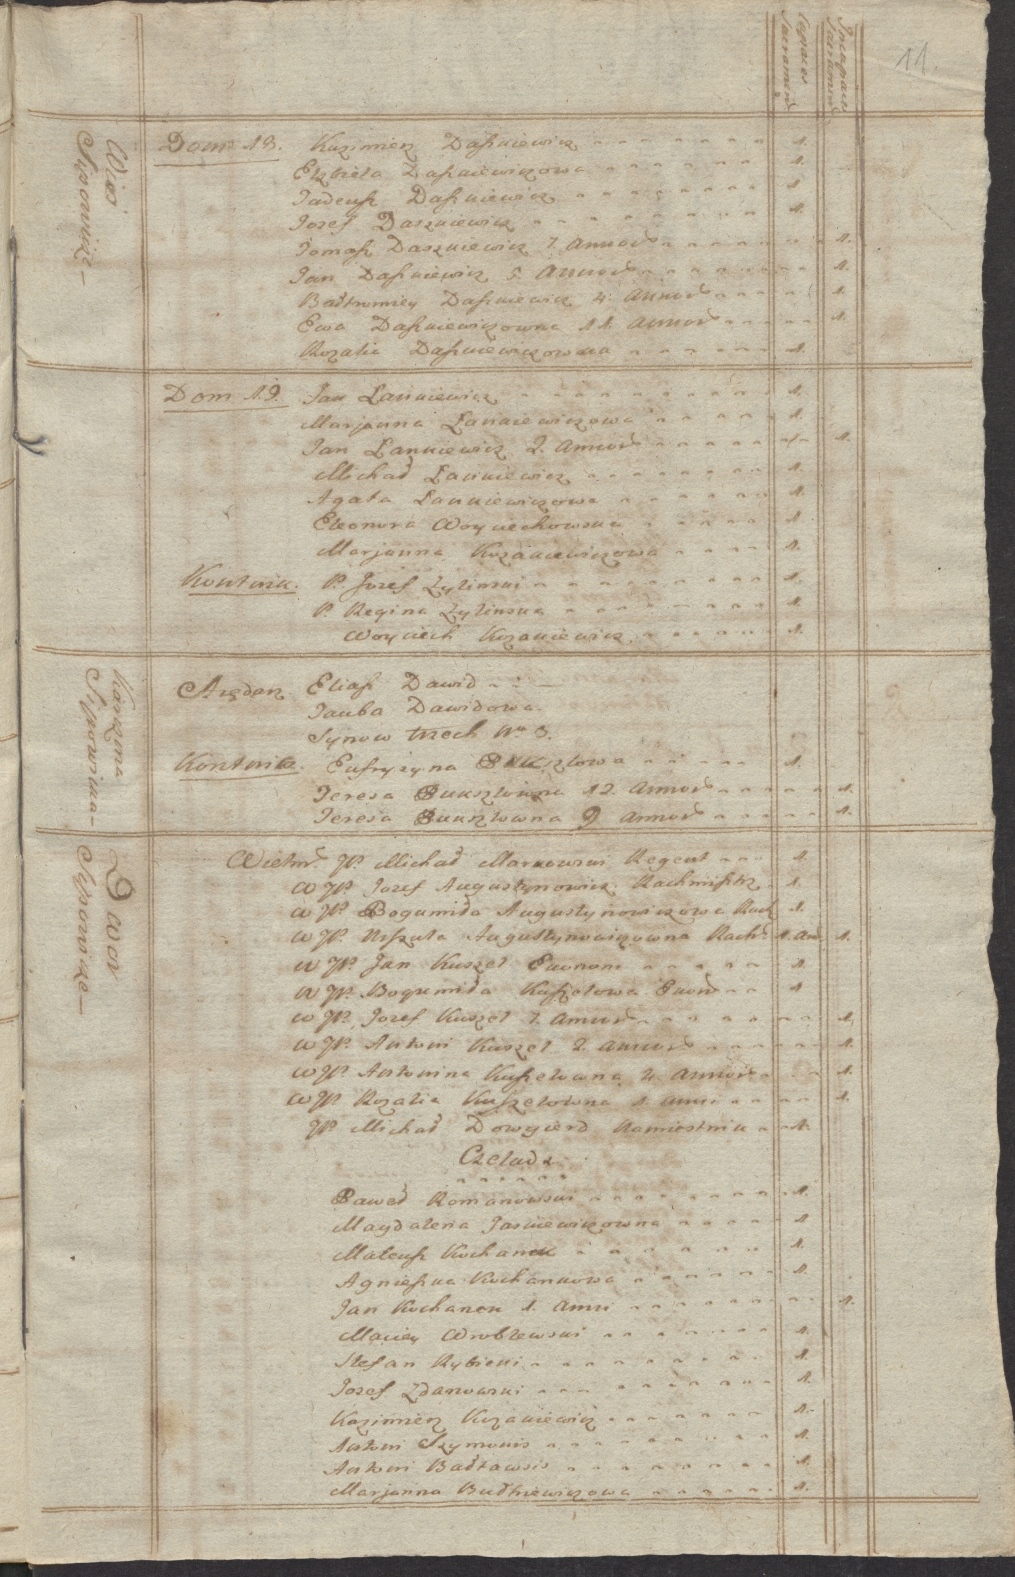 11.
Capaces Sacramen
Incapaces Sacramen
Wieś
Dom 18. Kazimierz Daszkiewicz 1.
Elżbieta Daszkiewiczowa 1.
Tadeusz Daszkiewicz 1
Jozef Daszkiewicz 1.
Tomasz Daszkiewicz 7. Annor 1.
Jan Daszkiewicz 5. Annor 1.
Bałtromiey Daszkiewicz 4. Annor 1.
Ewa Daszkiewiczowna 11. Annor 1.
Rozalia Daszkiewiczowna 1.
Dom 19. Jan Łankiewicz 1.
Marjanna Łankiewiczowa 1.
Jan Łankiewicz 2. Annor 1.
Michał Łankiewicz 1.
Agata Łankiewiczowa 1.
Eleonora Woyciechowska 1
Marjanna Kozakiewiczowa 1.
Kontnik. P. Jozef Zylinski 1.
P. Regina Zylinska 1.
Woyciech Kozakiewicz 1.
Karczma
Arędarz Eliasz Dawid
Dawidowa.
Synow trzech Nro 3.
Kontnica. Eufryzyna Puksztowa 1.
Teresa Puksztowna 12. Annor 1.
Teresa Puksztowna 9 Annor 1.
Dwor
Wielm. JP Michał Markowski Regent 1.
WJP. Jozef Augustynowicz Rachmistrz 1.
WJP. Bogumiła Augustynowiczowa Rach 1.
WJP. Urszula Augustynowiczowna Rach. 1. 
WJP. Jan Kuszel Ekonom 1
WJP. Bogumiła Kuszelowa Ekon 1
WJP. Jozef Kuszel 7. Annor 1.
WJP. Antoni Kuszel 2. Annor 1.
WJP. Antonina Kuszelowna 4. Annor 1.
WJP Rozalia Kuszelowna 1. Anni 1.
JP. Michał Dowgierd Namiestnik 1.
Czeladz
Paweł Romanowski 1.
Magdalena Jaskiewiczowna 1
Mateusz Kochanek 1.
Agnieszka Kochankowa 1.
Jan Kochanek 1. Anni 1.
Maciey Wroblewski 1.
Stefan Rybicki 1.
Jozef Zdanowski 1.
Kazimierz Kozakiewicz 1.
Antoni Szymonis 1.
Antoni Bałtawsis 1.
Marjanna Budkiewiczowa 1.